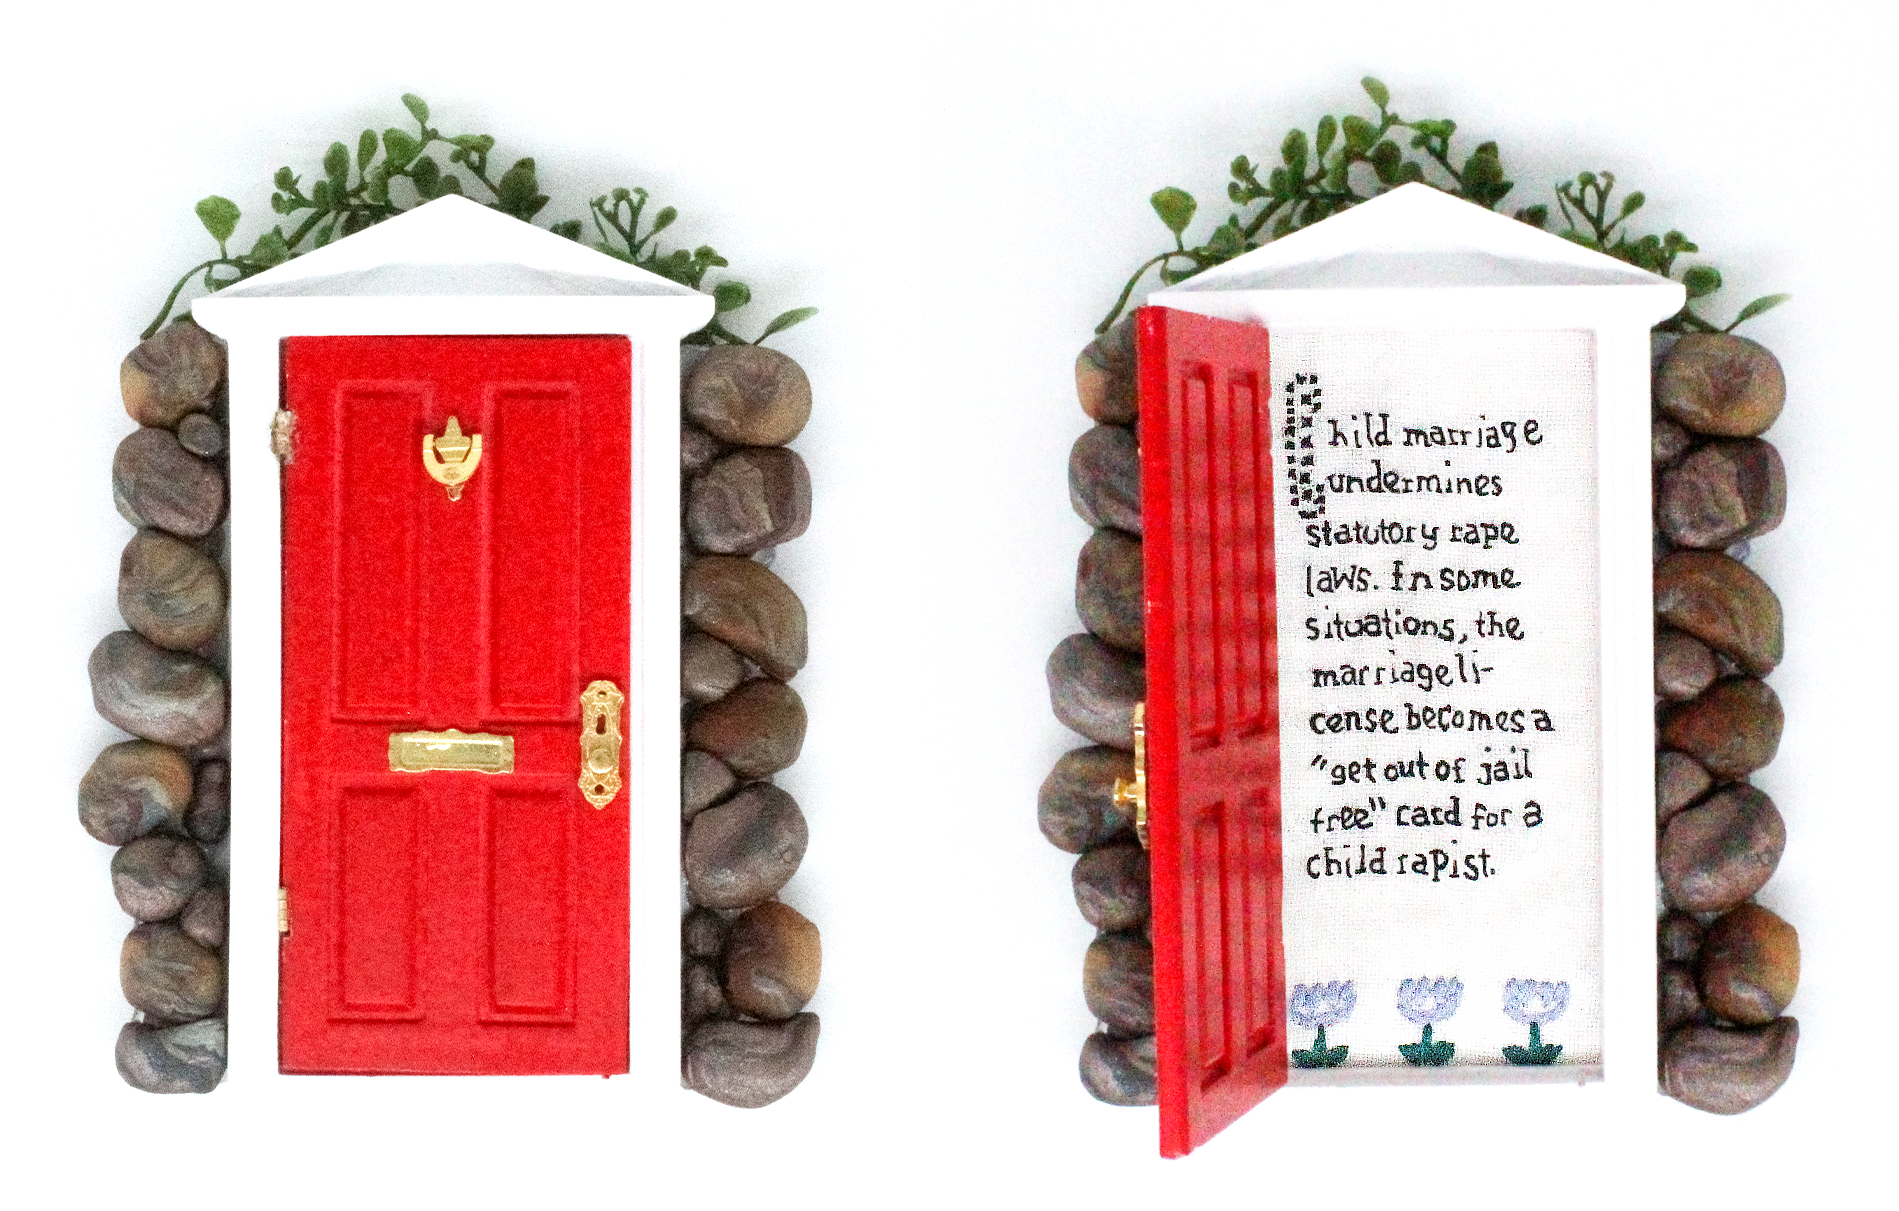 Child marriage
undermines
statutory rape
laws. In some
situations, the
marriage li-
cense becomes a
"get out of jail
free" card for a
child rapist.